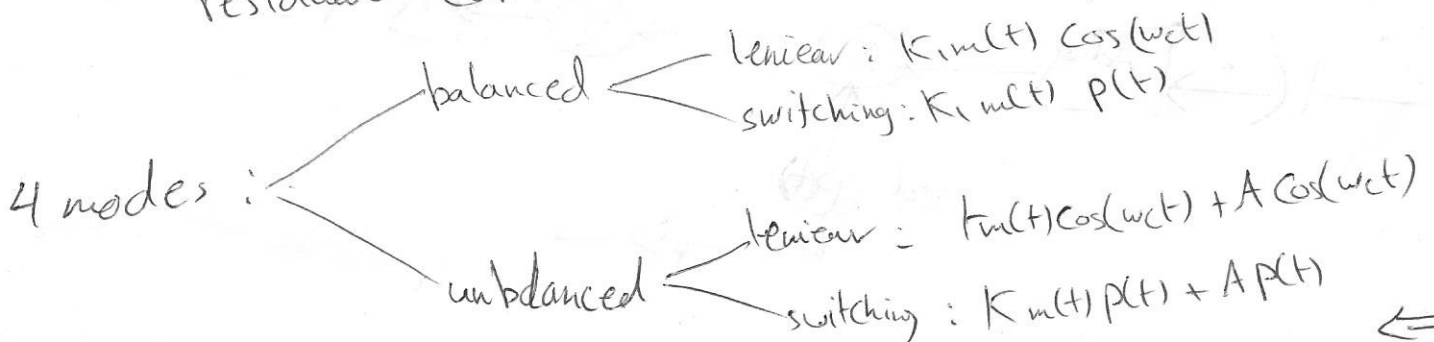 balanced
lenieav : K₁m(t) Cos(wct)
switching : K₁ m(t) p(t)
4 modes :
unbdanced
lenieav : Km(t)cos(wct) + A Cos(wct)
switching : K m(t) p(t) + A p(t)
⇐